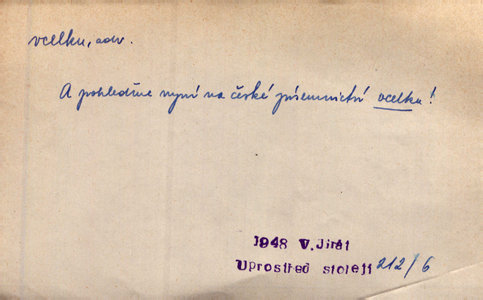 vcelku, adv.
A pohleďme nyní na české písemnictví vcelku!
1948 V. Jirát
Uprostřed století 212/6